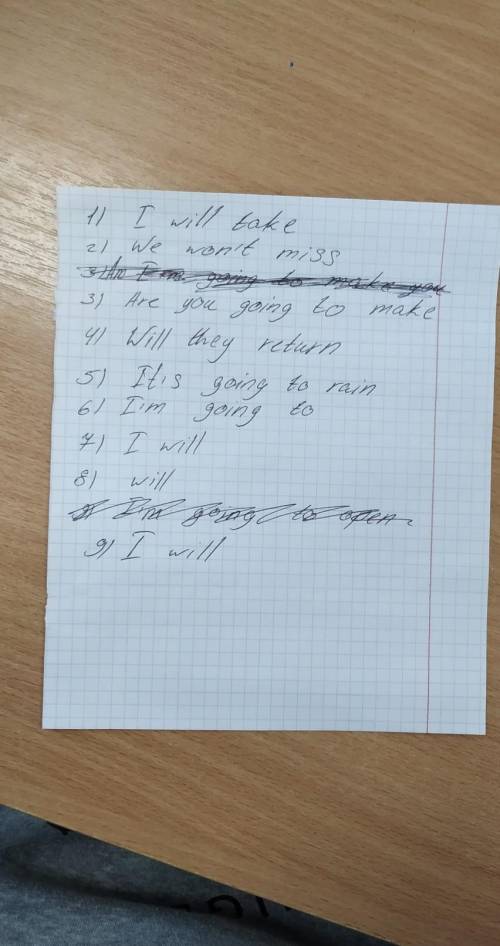 1) I will take
2) We won't miss
3) Are I'm going to make you
3) Are you going to make
4) Will they return
5) It's going to rain
6) I'm going to
7) I will
8) will
9) I'm going to open
9) I will